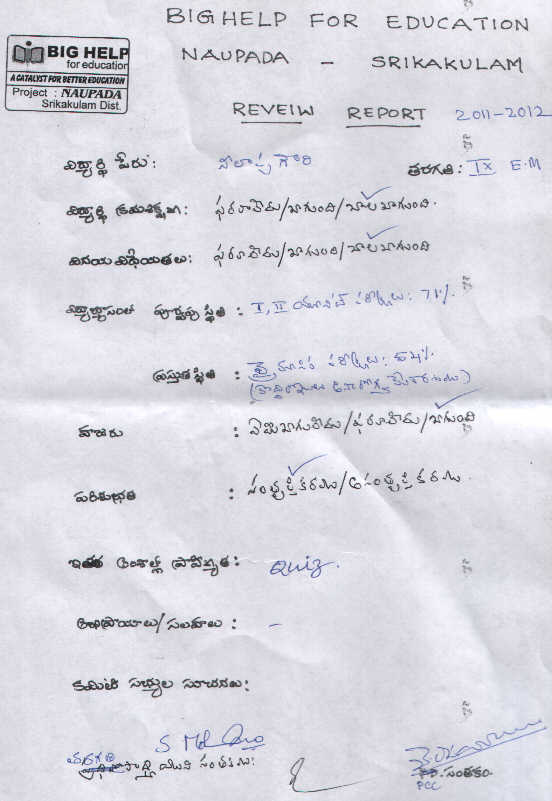 BIG HELP FOR EDUCATION
BIG HELP
for education
A CATALYST FOR BETTER EDUCATION
Project : NAUPADA
Srikakulam Dist.
NAUPADA - SRIKAKULAM
REVEIW REPORT 2011-2012
విద్యార్థి పేరు: గౌరి తరగతి: IX E.M
విద్యార్థి క్రమశిక్షణ: ఫరవాలేదు/బాగుంది/చాలా బాగుంది.
వినయ విధేయతలు: ఫరవాలేదు/బాగుంది/చాలా బాగుంది
విద్యాభ్యాసంలో పూర్వపు స్థితి : I, II యూనిట్ పరీక్షలు: 71%.
ప్రస్తుత స్థితి : త్రైమాసిక పరీక్షలు: 54%
హాజరు : ఏమిబాగులేదు/ఫరవాలేదు/బాగుంది
పరిశుభ్రత : సంతృప్తికరము/అసంతృప్తికరము.
ఇతర అంశాల్లో ప్రావీణ్యత: Quiz.
అభిప్రాయాలు/సలహాలు : -
కమిటి సభ్యుల సూచనలు:
తరగతి
సంతకము:
సంతకం.
PCC